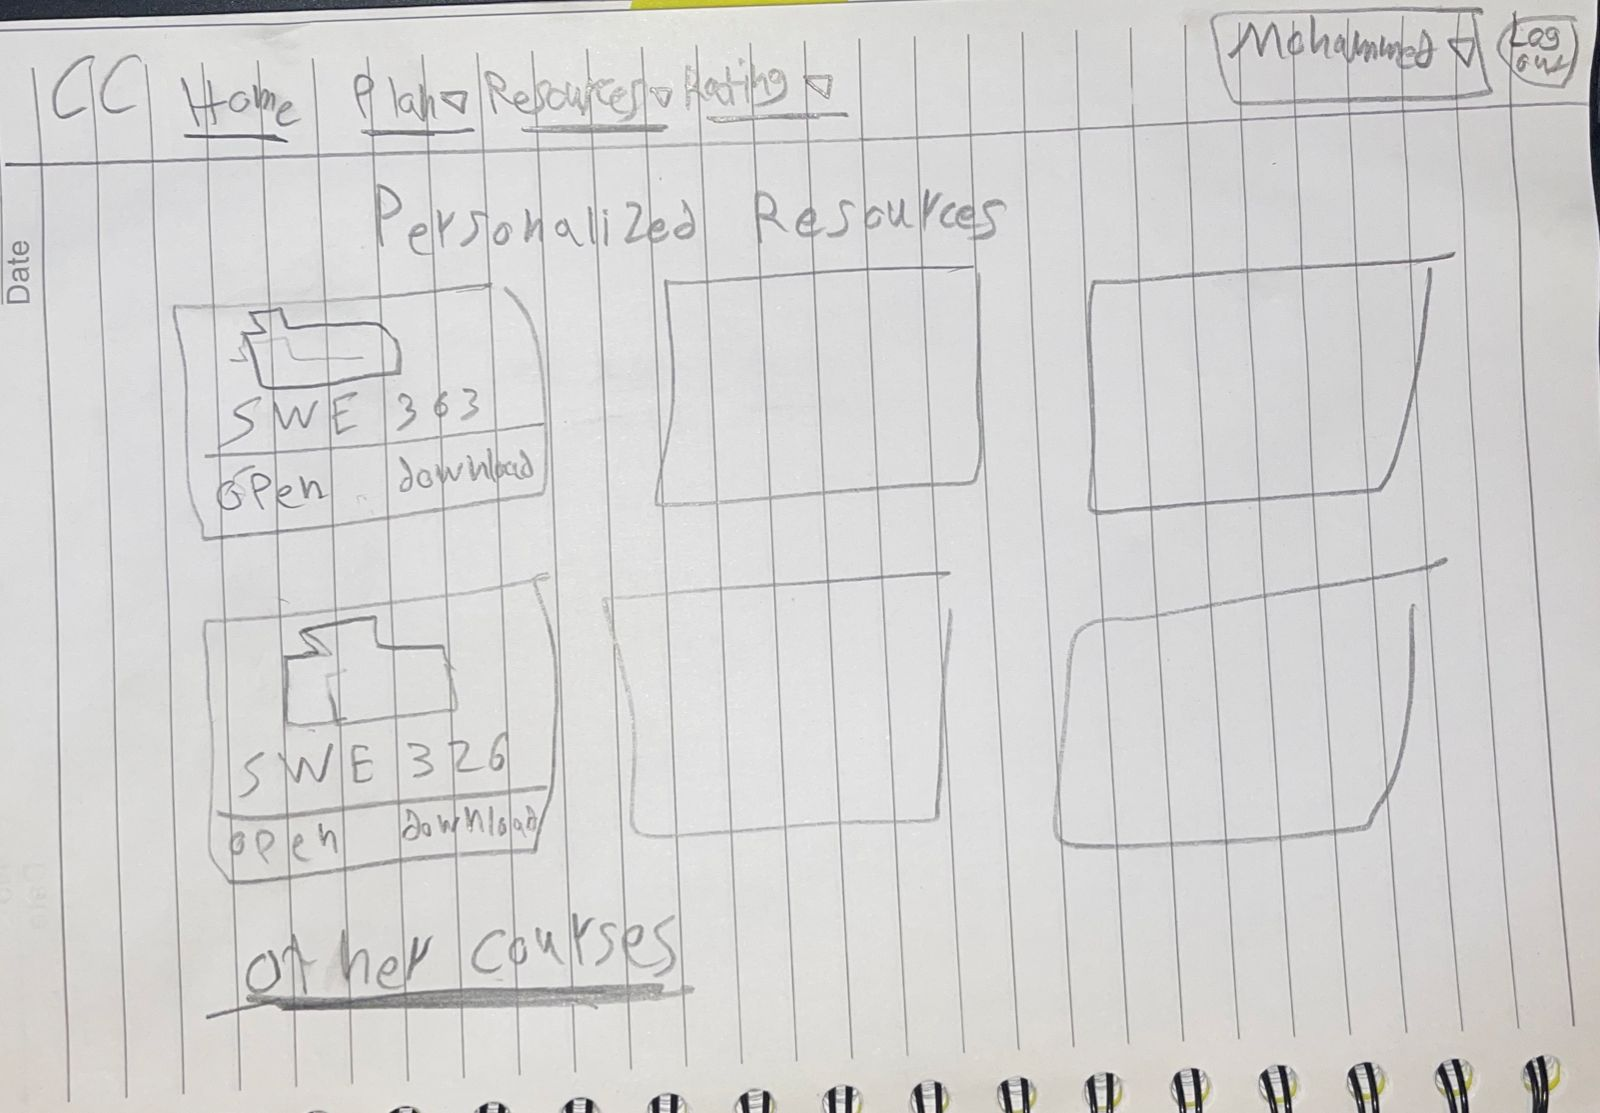 CC Home Plan Resources Rating Mohammed Log out
Personalized Resources
SWE 363
open download
SWE 326
open download
other courses
Date